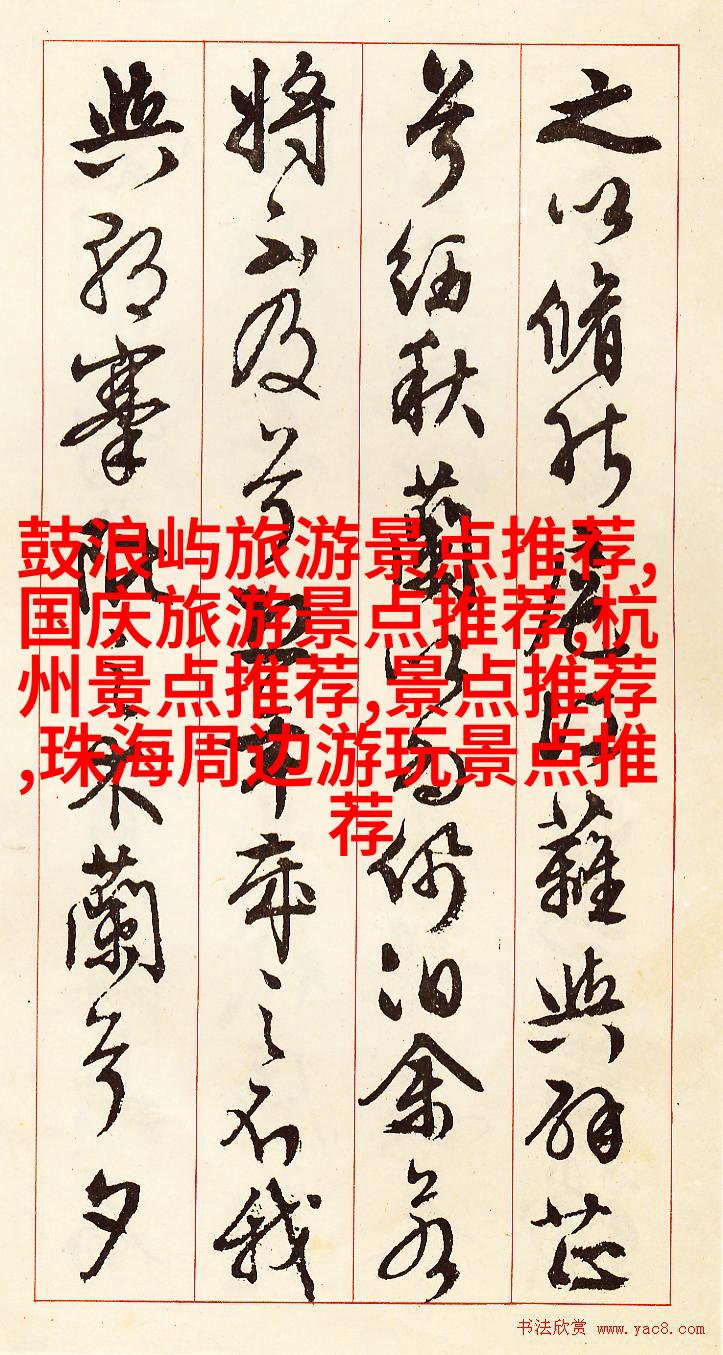 鼓浪屿旅游景点推荐,
国庆旅游景点推荐,杭
州景点推荐,景点推荐
,珠海周边游玩景点推
荐
之以脩能扈江蘺與辟芷
兮紉秋蘭以為佩汨余若
將不及兮恐年歲之不我
與朝搴阰之木蘭兮夕
书法欣赏 www.yac8.com